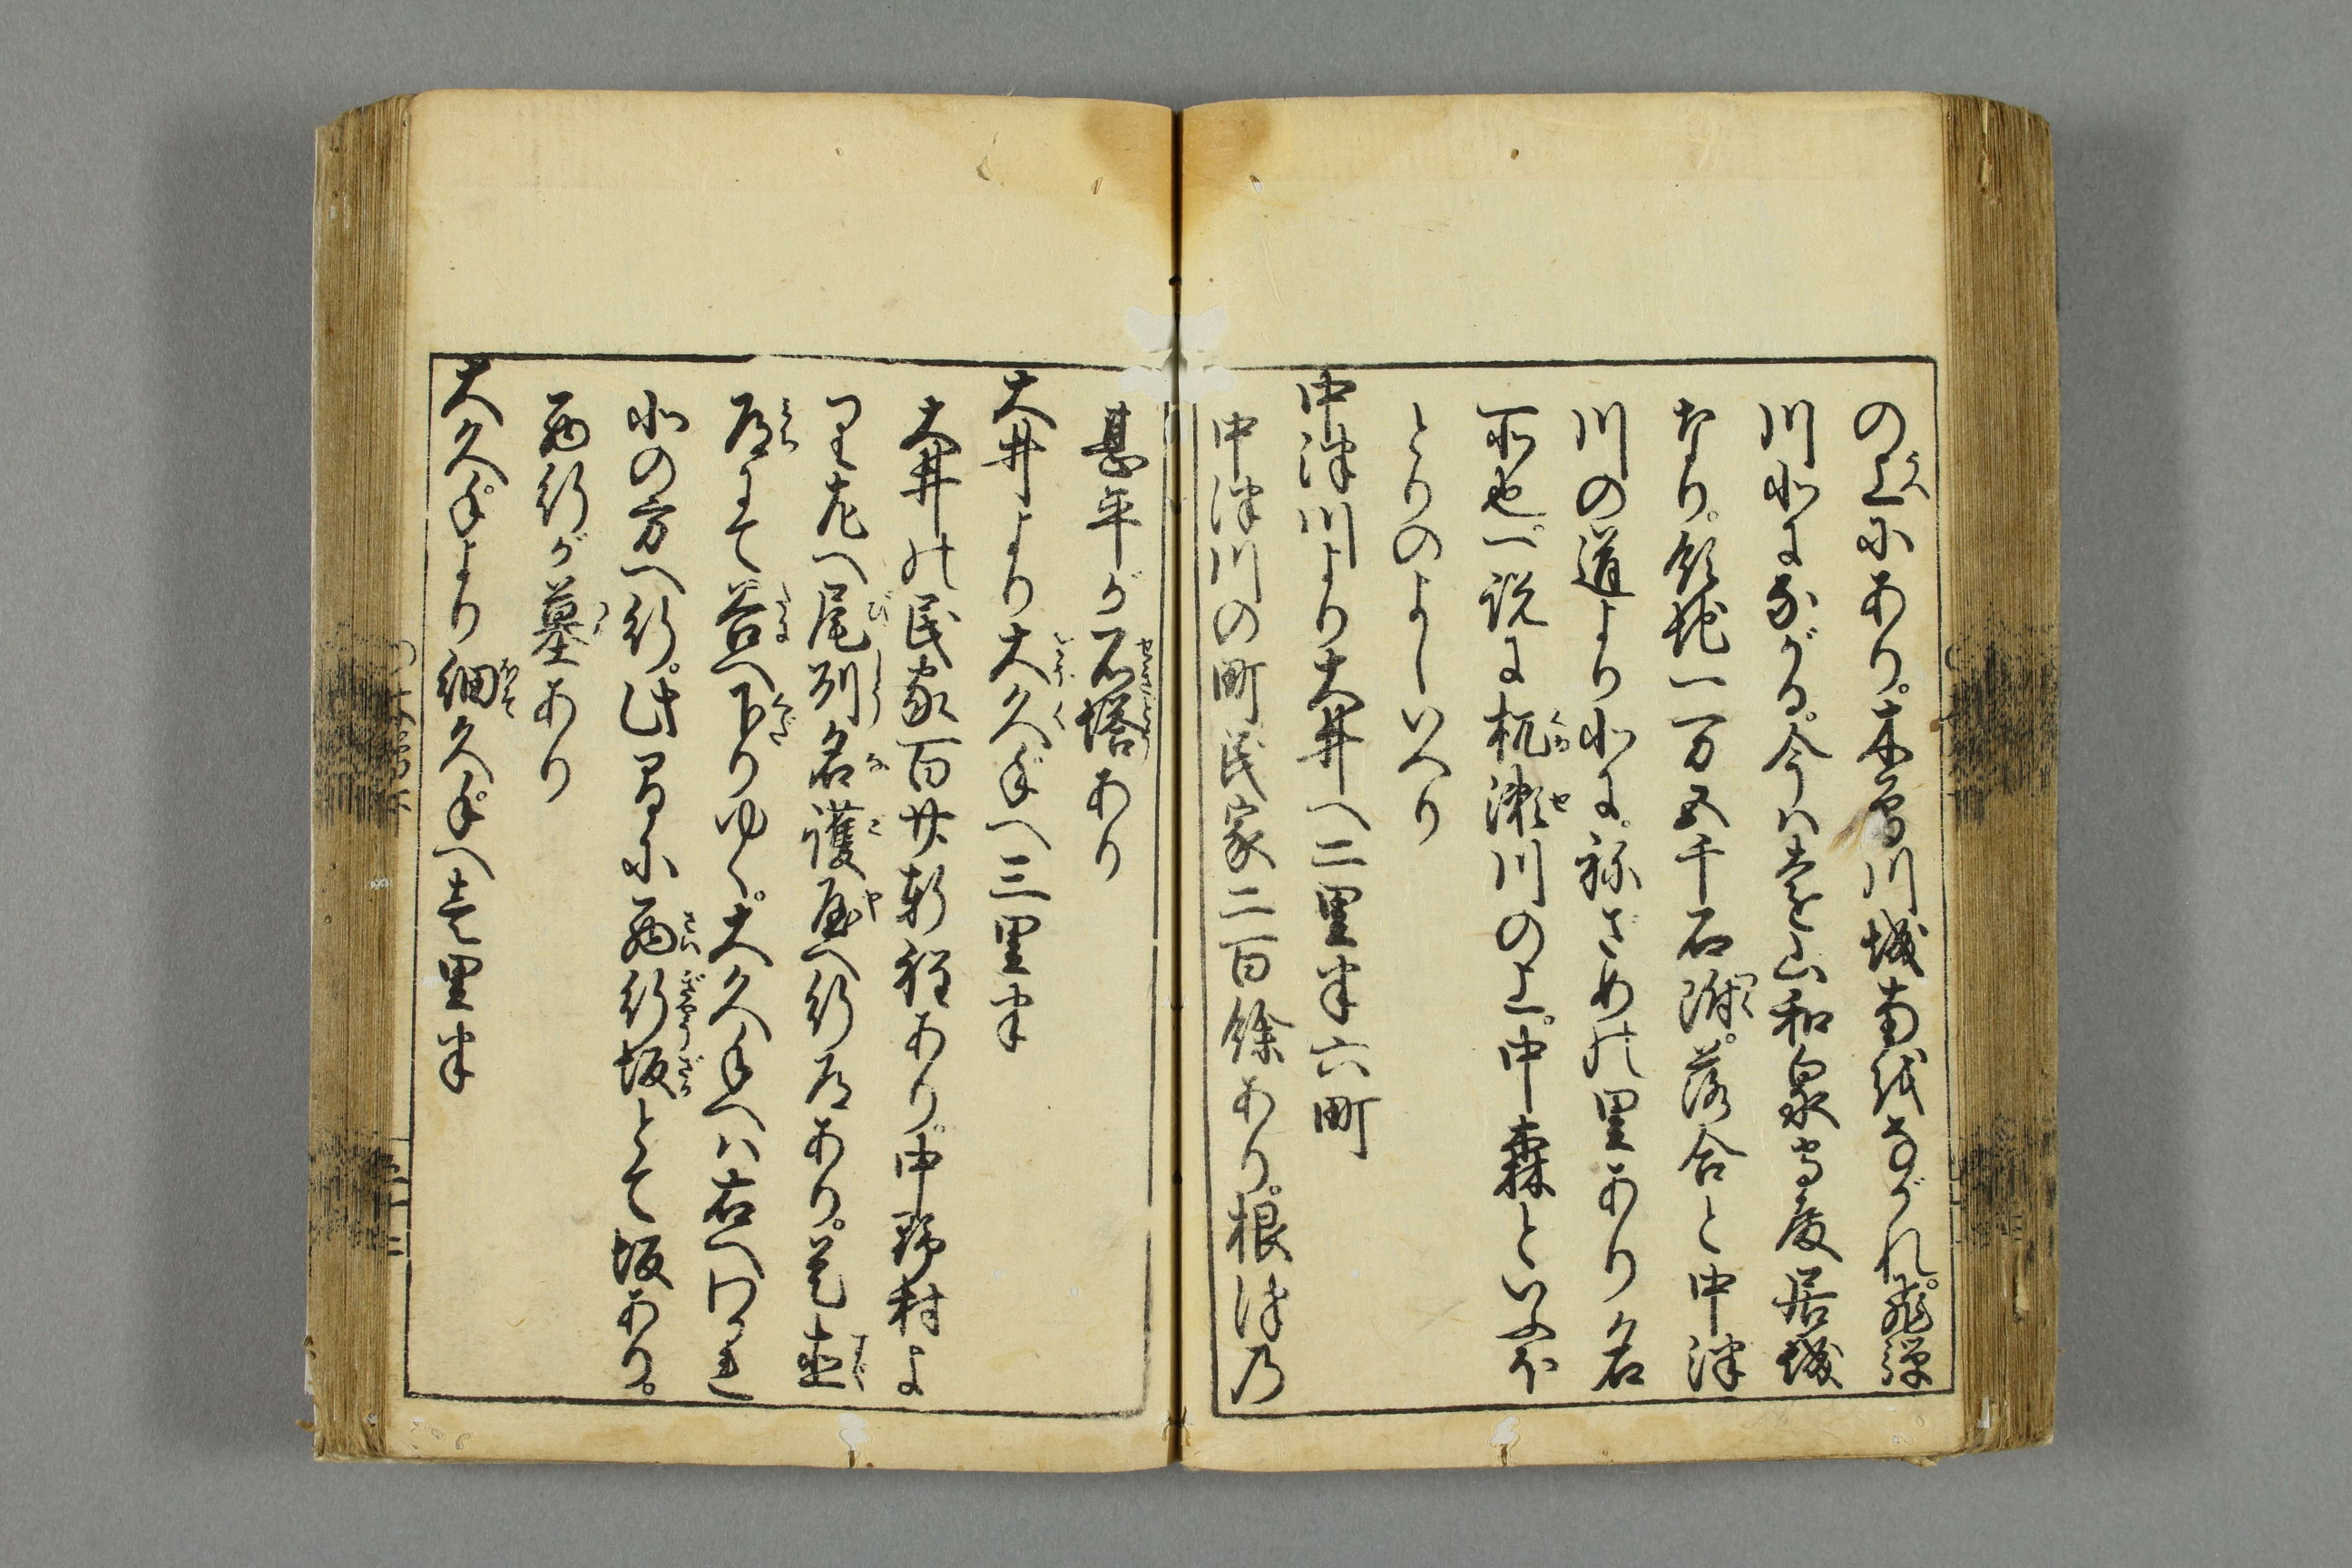 の上にあり。木曽川城南結ながれ。飛騨
川北にながる。今ハ遠山和泉守殿居城
なり。領地一万五千石附。落合と中津
川の道より北に。祢ざめの里あり名
所也。一説に杭瀬川の上。中森といふ
とりのよしいへり
中津川より大井へ二里半六町
中津川の町民家二百餘あり。根津乃
甚平が石塔あり
大井より大久手へ三里半
大井の民家百廿軒程あり。中野村よ
り左へ尾刕名護屋へ行道あり。是直
道にて谷へ下りゆく。大久手へハ右へわかれ
北の方へ行。此間に西行坂とて坂あり。
西行が墓あり
大久手より細久手へ壱里半